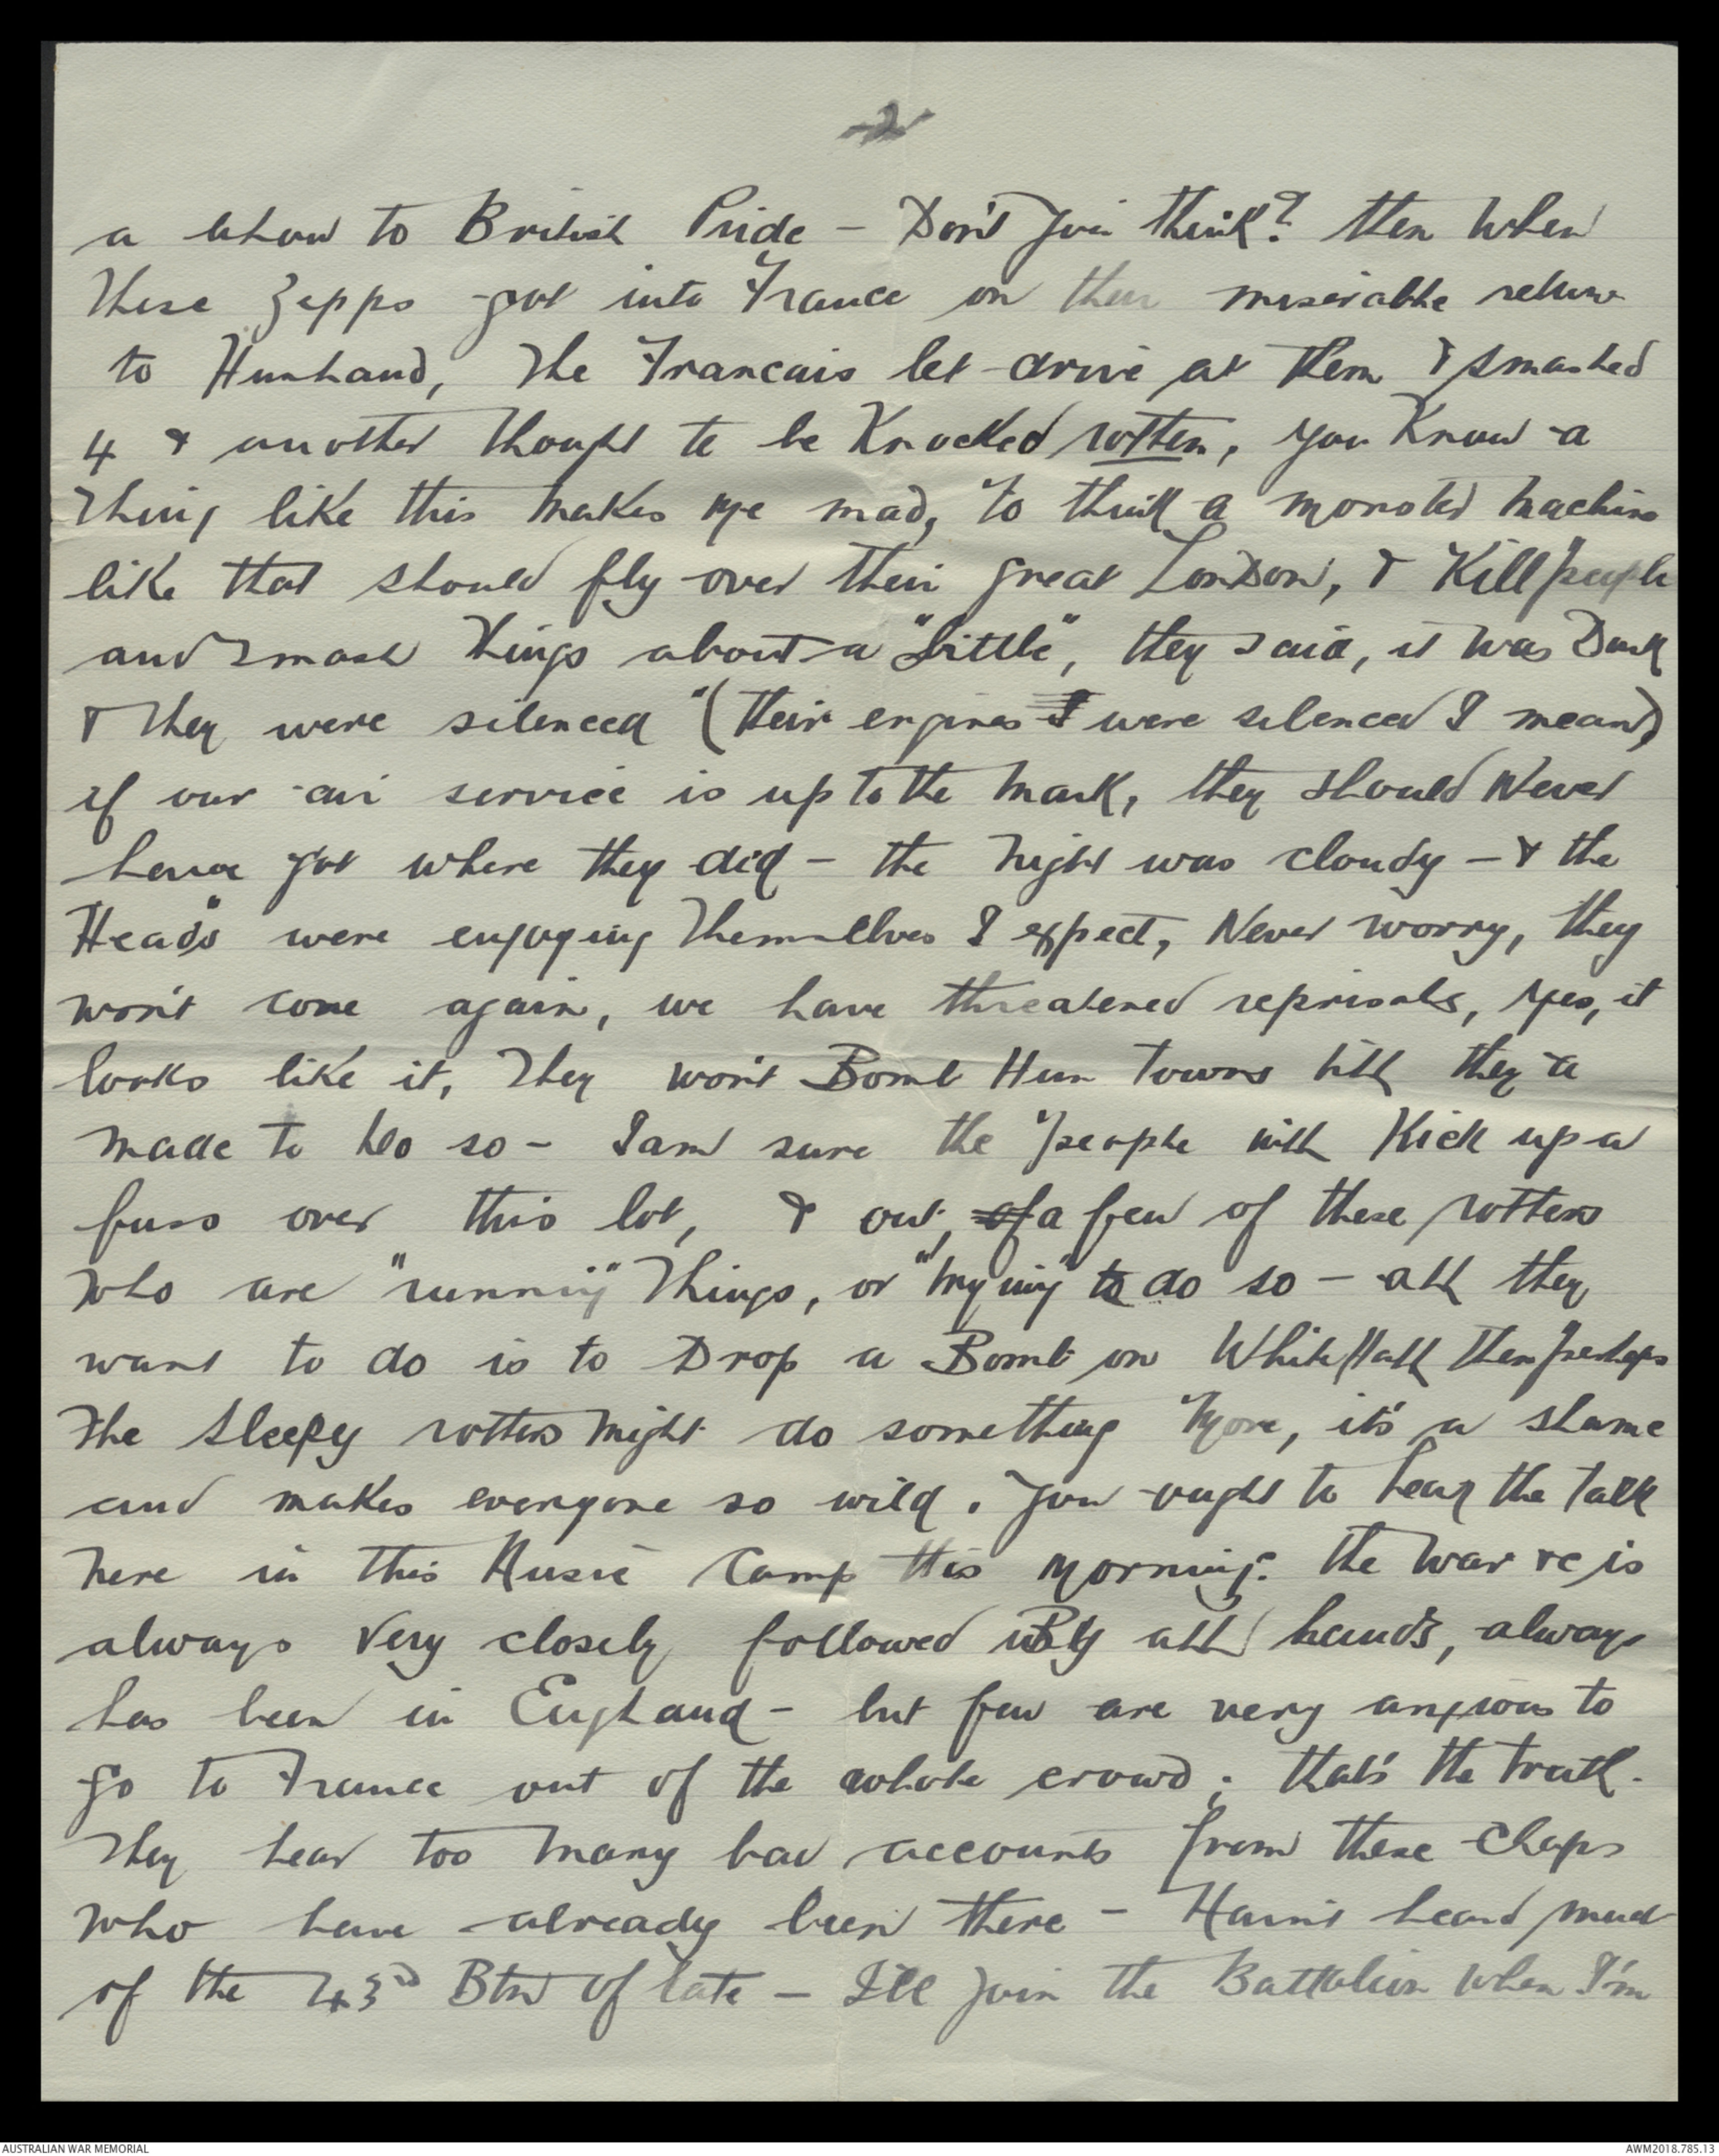 2
a blow to British Pride - Don't you think? then when
these Zepps got into France on their miserable return
to Hunland, the Francais let drive at them & smashed
4 & another thought to be Knocked rotten, you Know a
thing like this makes me mad, to think a monster machine
like that should fly over their great London, & Kill people
and smash things about a "little", they said, it was Dark
& they were silenced "(their engines I were silenced I mean)
if our air service is up to the mark, they should Never
have got where they did - the night was cloudy - & the
Heads" were enjoying themselves I expect, Never worry, they
won't come again, we have threatened reprisals, yes, it
looks like it, they won't Bomb Hun towns till they're
made to do so - I am sure the people will Kick up a
fuss over this lot, & out, of a few of these rotters
who are "running" things, or "trying" to do so - all they
want to do is to Drop a Bomb on White Hall then perhaps
the sleepy rotters might do something more, it's a shame
and makes everyone so wild. You ought to hear the talk
here in this Music Camp this morning. the war &c is
always very closely followed By all hands, always
has been in England - but few are very anxious to
go to France out of the whole crowd; that's the truth.
They hear too many bad accounts from these chaps
who have already been there - Haven't heard much
of the 43rd Btn of late - I'll join the Battalion when I'm
AUSTRALIAN WAR MEMORIAL
AWM2018.785.13